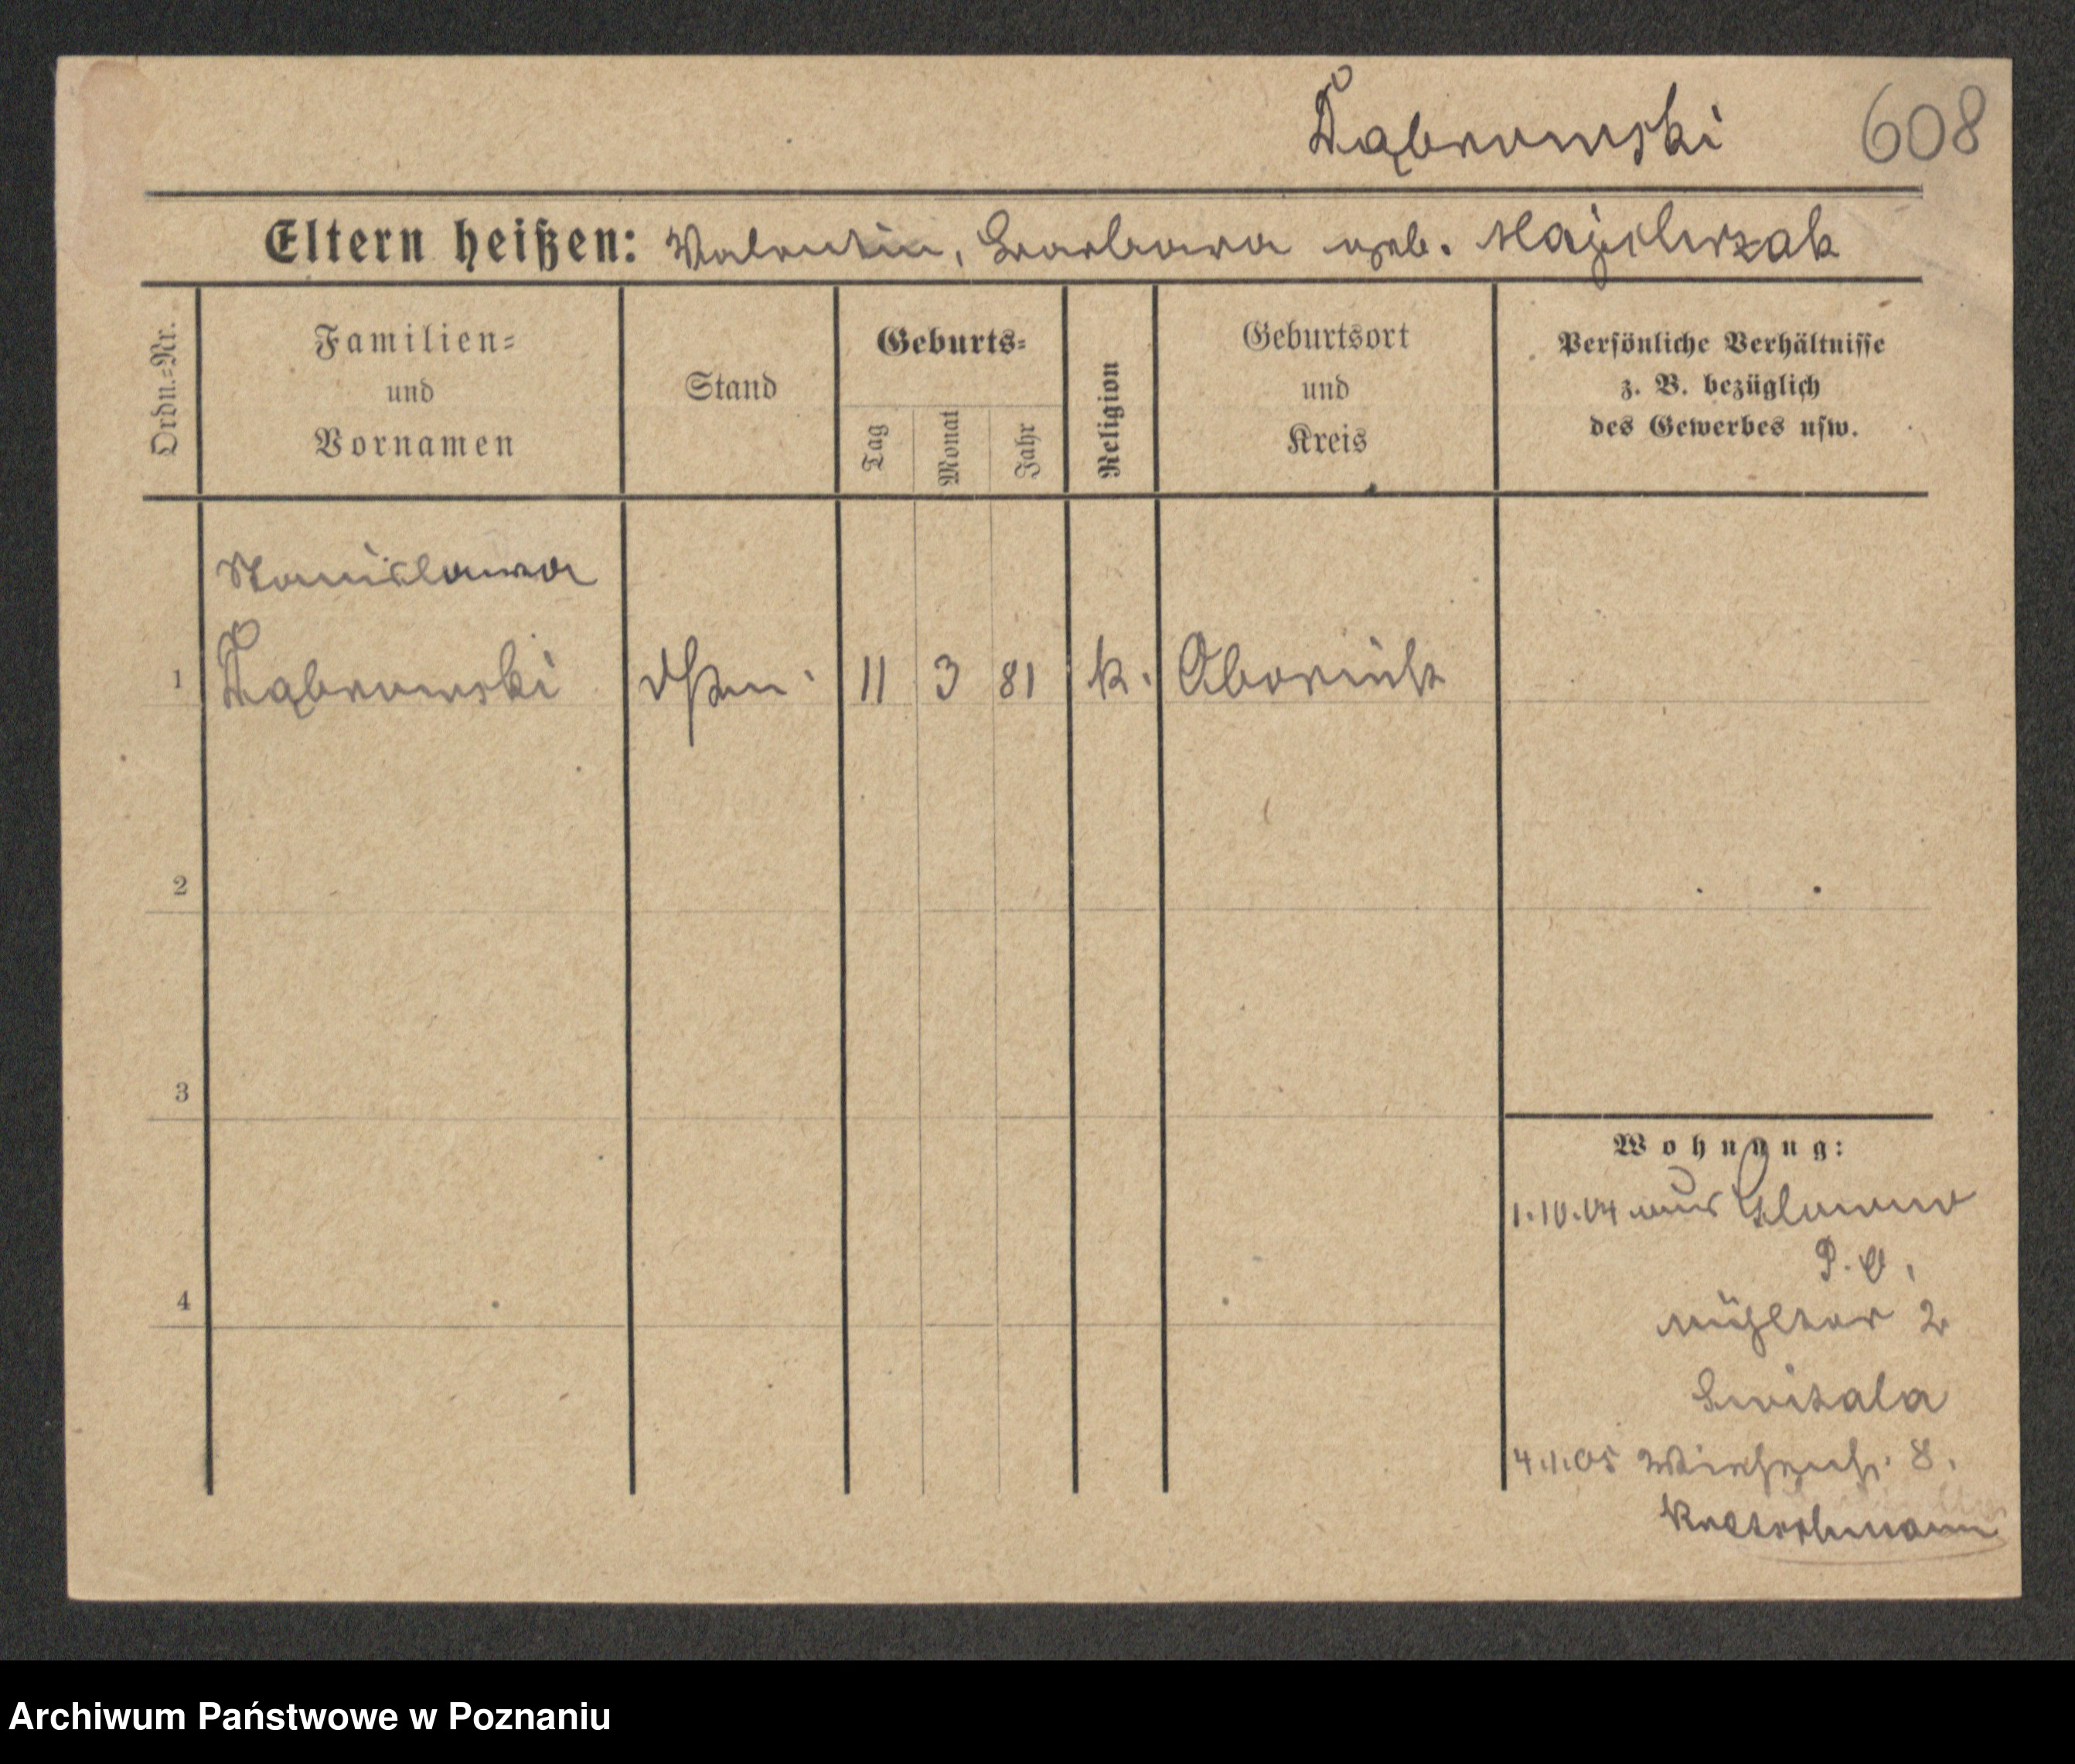 Dąbrowski 608
Eltern heißen: Valentin, Barbara geb. Majchrzak
Ordn.=Nr.
Familien=
und
Vornamen
Stand
Geburts=
Tag
Monat
Jahr
Religion
Geburtsort
und
Kreis
Persönliche Verhältnisse
z. B. bezüglich
des Gewerbes usw.
Stanislawa
1 Dąbrowski 11 3 81 k.
2
3
4
Wohnung:
1.10.04 aus Glowno
P. O.
Mühltor 2
Switala
4.1.05 8.
Archiwum Państwowe w Poznaniu